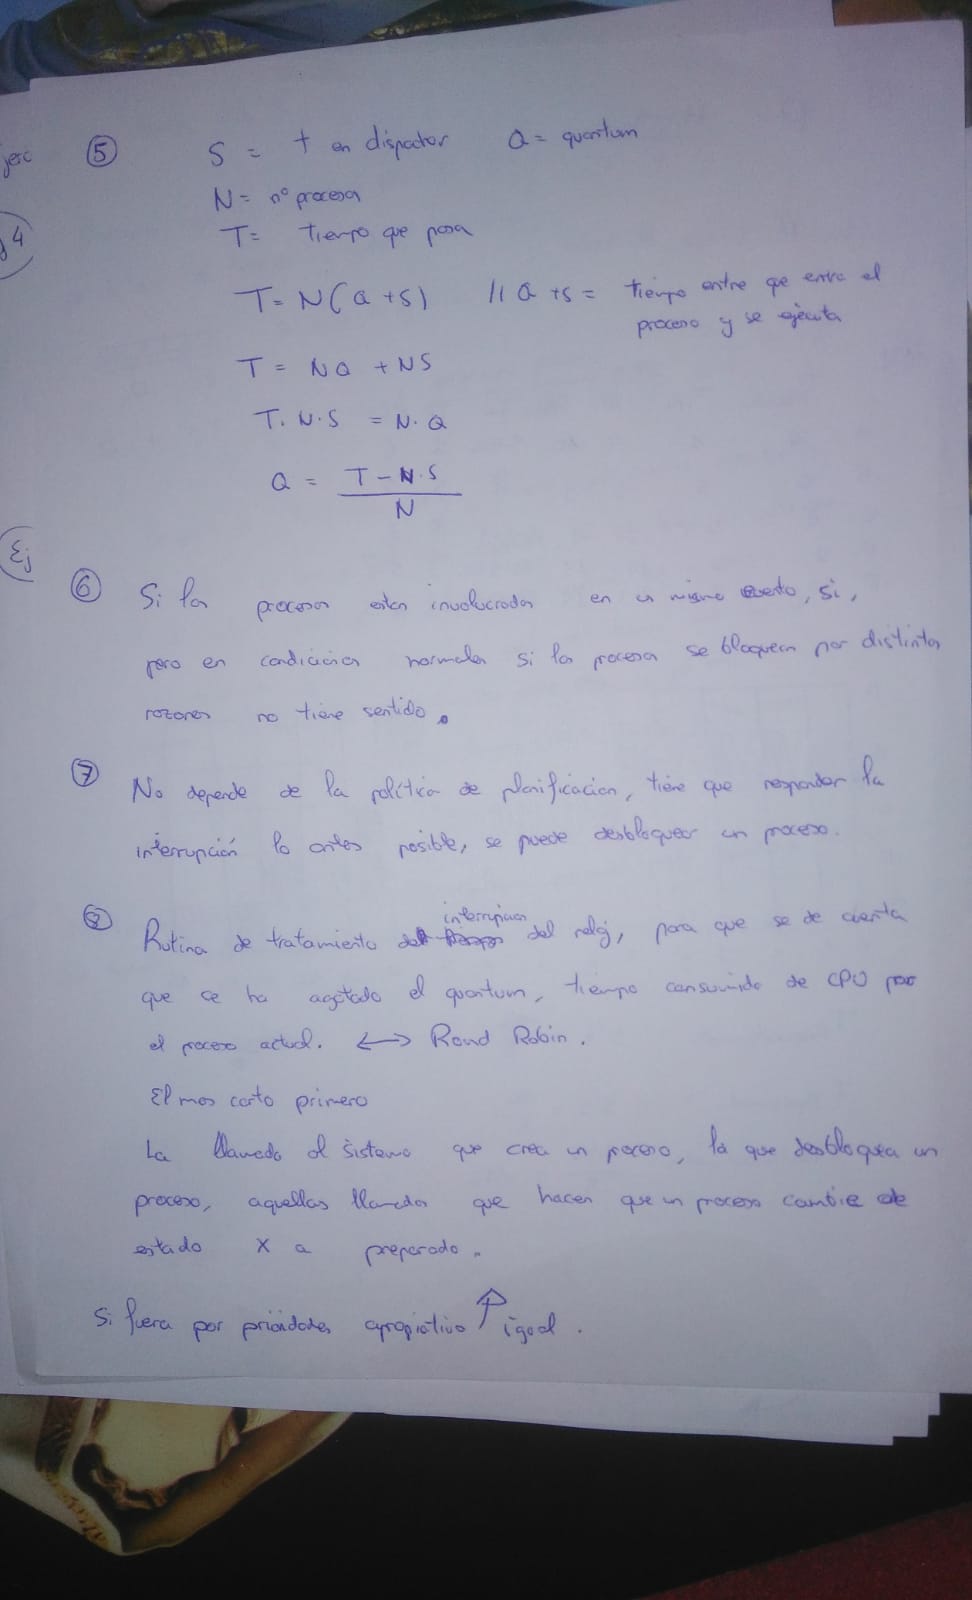 jerc
⑤ S = t en dispacher Q = quantum
N = nº procesos
4
T = tiempo que pasa
T = N(Q + S) // Q + S = tiempo entre que entra el
proceso y se ejecuta
T = NQ + NS
T. N.S = N. Q
Q = T - N.S
N
Ej
⑥ Si los procesos estan involucrados en un mismo evento, si,
pero en condiciones normales si los procesos se bloquean por distintas
razones no tiene sentido.
⑦ No depende de la política de planificacion, tiene que responder la
interrupción lo antes posible, se puede desbloquear un proceso.
interrupcion
⑧ Rutina de tratamiento del reloj, para que se de cuenta
que se ha agotado el quantum, tiempo consumido de CPU por
el proceso actual. <-> Round Robin.
El mas corto primero
La llamada al sistema que crea un proceso, la que desbloquea un
proceso, aquellas llamadas que hacen que un proceso cambie de
estado X a preparado.
Si fuera por prioridades apropiativo ↑ igual.